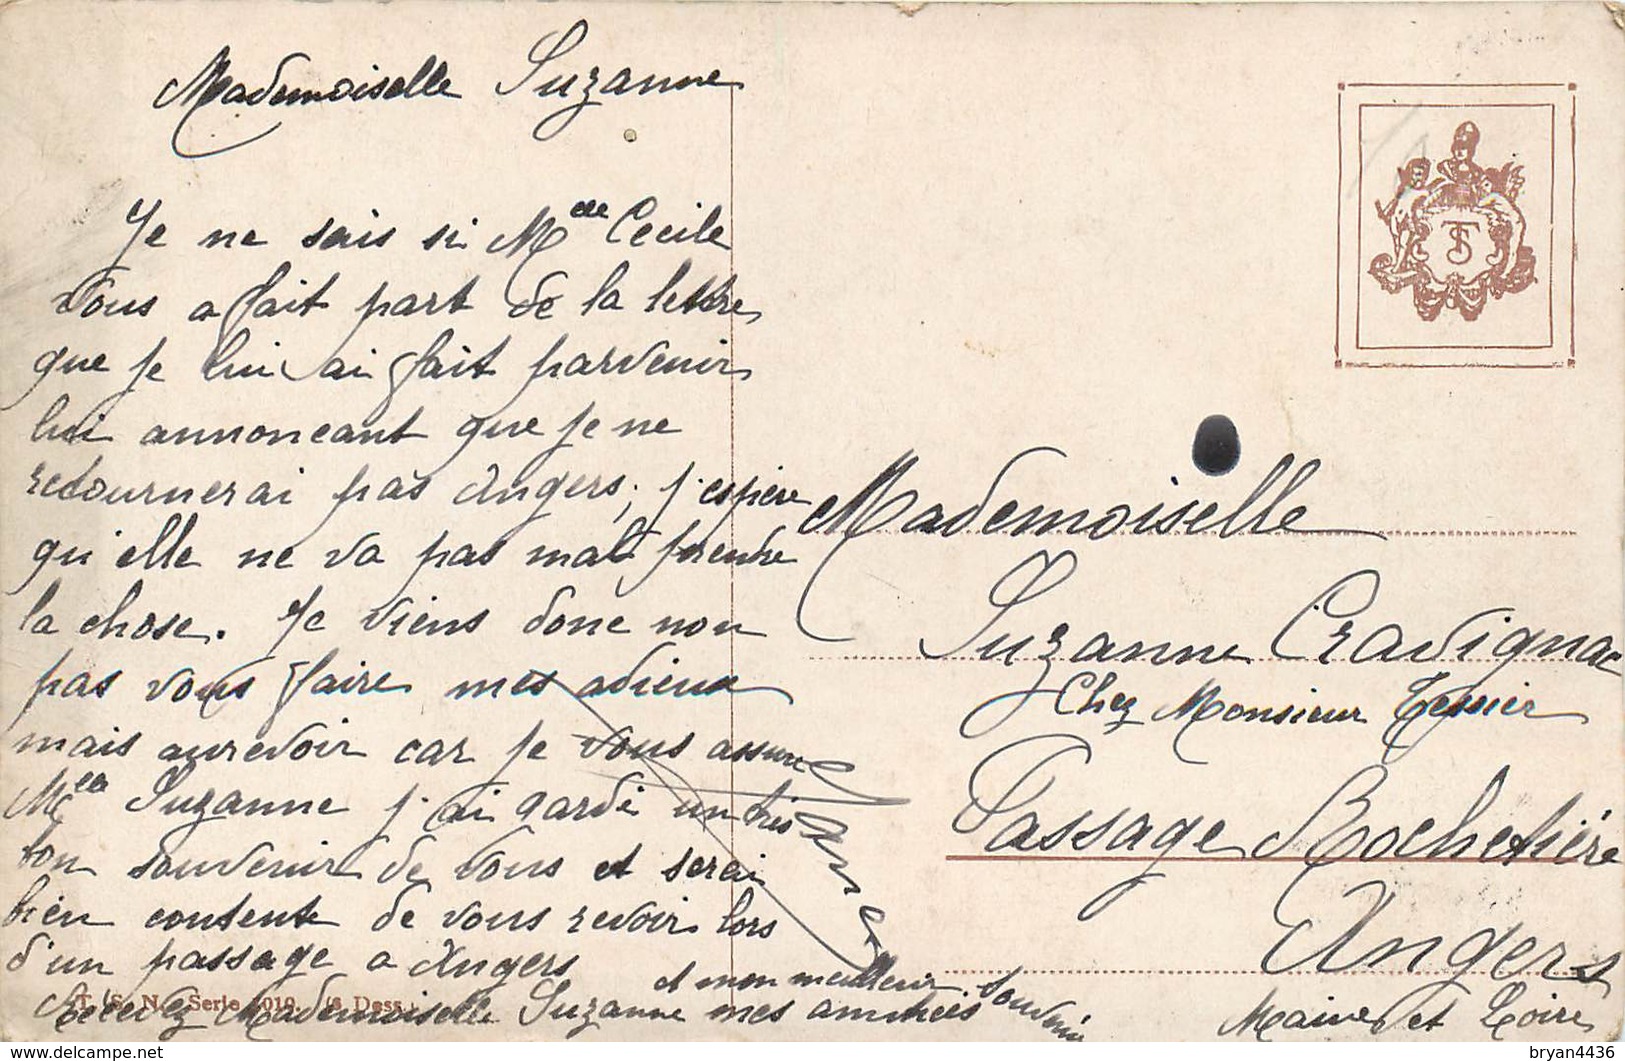 Mademoiselle Suzanne
Je ne sais si Melle Cecile
vous a fait part de la lettre
que je lui ai fait parvenir
lui annonceant que je ne
retournerai pas Angers; j'espère
qu'elle ne va pas mal prendre
la chose. Je viens donc non
pas vous faire mes adieux
mais aurevoir car je vous assure
Melle Suzanne j'ai gardé un très
bon souvenir de vous et serai
bien contente de vous revoir lors
d'un passage a Angers
Recevez Mademoiselle Suzanne mes amitiés
et mon meilleur souvenir
T. S. N. Serie 1019 (6 Dess.)
TS
Mademoiselle
Suzanne Cravignac
Chez Monsieur Tessier
Passage Rochetière
Angers
Maine et Loire
bryan4436